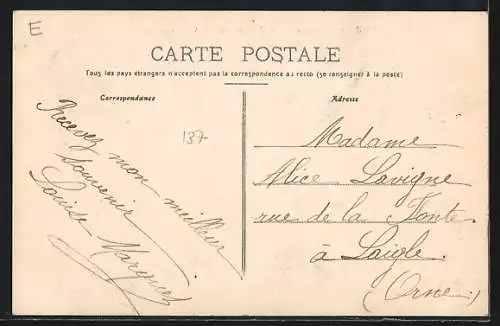 E
CARTE POSTALE
Tous les pays étrangers n'acceptent pas la correspondance au recto (se renseigner à la poste)
Correspondance
Recevez mon meilleur
souvenir
Louise
137
Adresse
Madame
Alice Lavigne
rue de la Fonte
à Laigle.
(Orne)